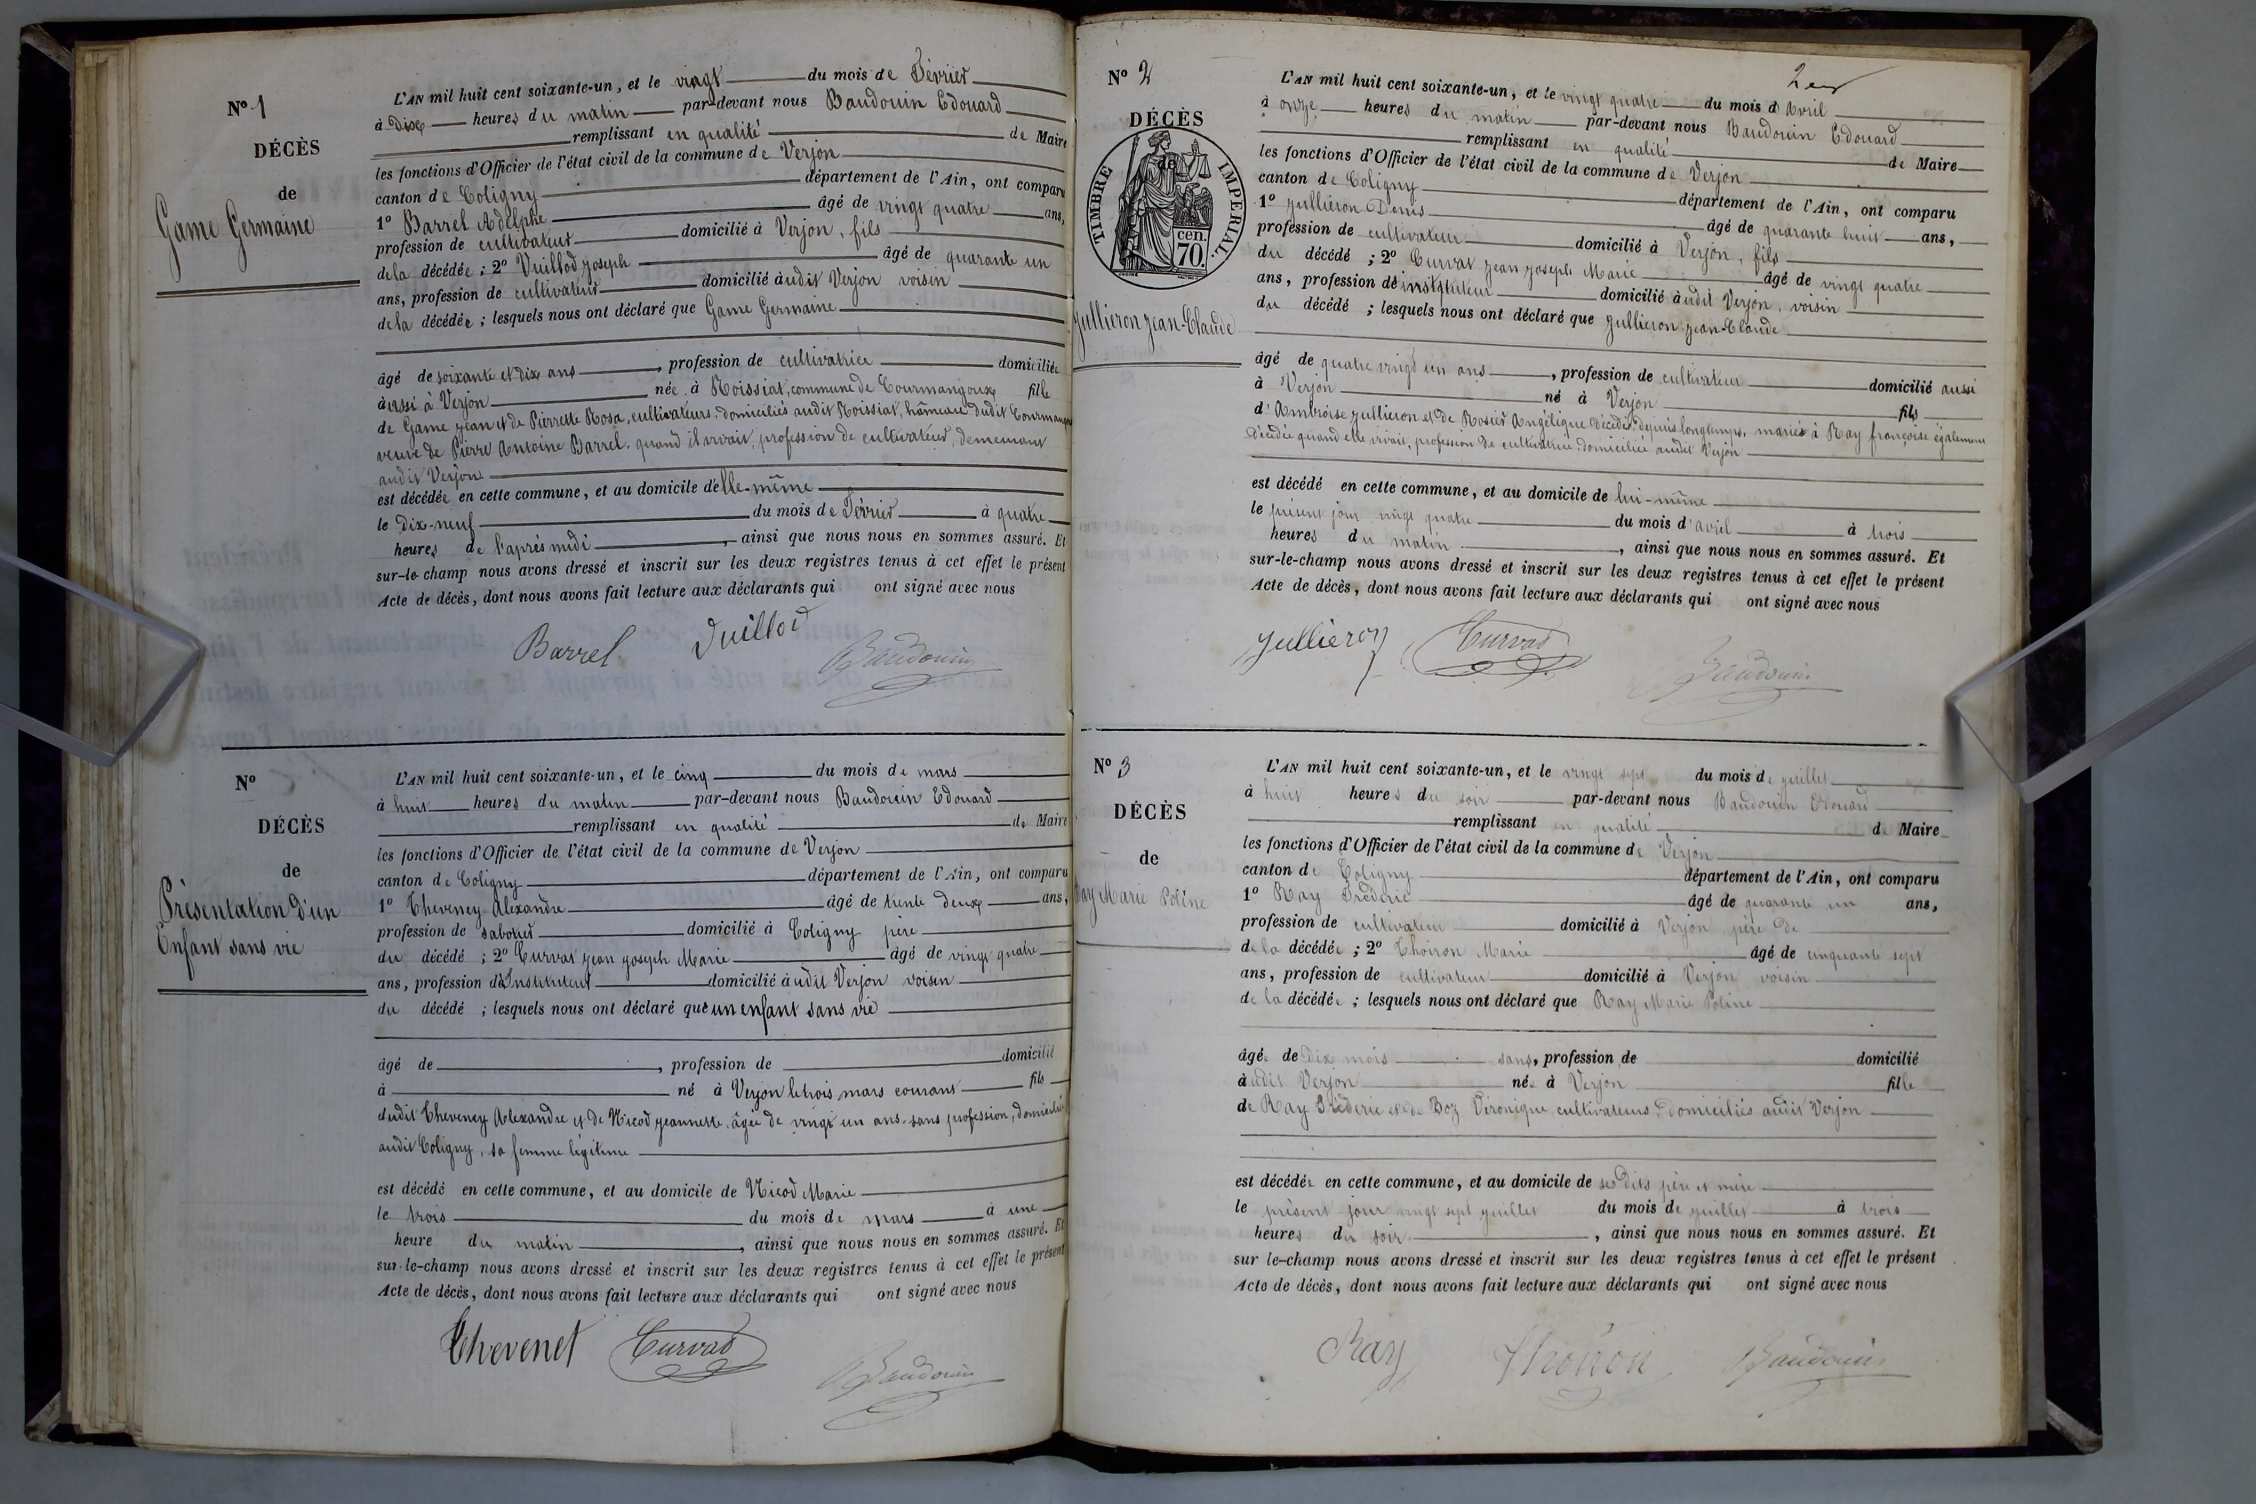 N° 1
DÉCÈS
de
Game Germaine
L'AN mil huit cent soixante-un, et le vingt du mois de Février
à dix heures du matin par-devant nous Baudouin Edouard
remplissant en qualité de Maire
les fonctions d'Officier de l'état civil de la commune de Verjon
canton de Coligny département de l'Ain, ont comparu
1° Barrel Adelphe âgé de vingt quatre ans,
profession de cultivateur domicilié à Verjon, fils
de la décédée ; 2° Vuillod Joseph âgé de quarante un
ans, profession de cultivateur domicilié audit Verjon voisin
de la décédée ; lesquels nous ont déclaré que Game Germaine
âgé de soixante et dix ans, profession de cultivatrice domiciliée
aussi à Verjon née à Roissiat, commune de Courmangoux fille
de Game Jean et de Pierrette Rosa, cultivateurs, domiciliés audit Roissiat, hâmeau dudit Courmangoux
veuve de Pierre Antoine Barrel, quand il vivait, profession de cultivateur, demeurant
audit Verjon
est décédée en cette commune, et au domicile d'elle-même
le dix-neuf du mois de Février à quatre
heures de l'après midi, ainsi que nous nous en sommes assuré. Et
sur-le-champ nous avons dressé et inscrit sur les deux registres tenus à cet effet le présent
Acte de décès, dont nous avons fait lecture aux déclarants qui ont signé avec nous
Barrel Vuillod Baudouin
N°
DÉCÈS
de
Présentation d'un
Enfant sans vie
L'AN mil huit cent soixante-un, et le cinq du mois de mars
à huit heures du matin par-devant nous Baudouin Edouard
remplissant en qualité de Maire
les fonctions d'Officier de l'état civil de la commune de Verjon
canton de Coligny département de l'Ain, ont comparu
1° Cheveney Alexandre âgé de trente deux ans,
profession de sabotier domicilié à Coligny père
du décédé ; 2° Curvat Jean Joseph Marie âgé de vingt quatre
ans, profession d'Instituteur domicilié audit Verjon voisin
du décédé ; lesquels nous ont déclaré que un enfant sans vie
âgé de , profession de domicilié
à né à Verjon le trois mars courant fils
dudit Cheveney Alexandre et de Nicod Jeannette, âgée de vingt un ans, sans profession, domiciliés
audit Coligny, sa femme légitime
est décédé en cette commune, et au domicile de Nicod Marie
le trois du mois de mars à une
heure du matin, ainsi que nous nous en sommes assuré. Et
sur-le-champ nous avons dressé et inscrit sur les deux registres tenus à cet effet le présent
Acte de décès, dont nous avons fait lecture aux déclarants qui ont signé avec nous
Chevenet Curvat Baudouin
N° 2
DÉCÈS
de
TIMBRE IMPÉRIAL.
cen.
70.
Jullieron Jean-Claude
L'AN mil huit cent soixante-un, et le vingt quatre du mois d'Avril
à onze heures du matin par-devant nous Baudouin Edouard
remplissant en qualité de Maire
les fonctions d'Officier de l'état civil de la commune de Verjon
canton de Coligny département de l'Ain, ont comparu
1° Jullieron Denis âgé de quarante huit ans,
profession de cultivateur domicilié à Verjon, fils
du décédé ; 2° Curvat Jean Joseph Marie âgé de vingt quatre
ans, profession de instituteur domicilié audit Verjon, voisin
du décédé ; lesquels nous ont déclaré que Jullieron Jean-Claude
âgé de quatre vingt un ans, profession de cultivateur domicilié aussi
à Verjon né à Verjon fils
d'Ambroise Jullieron et de Rosier Angélique décédés depuis longtemps, mariés à Ray françoise également
décédée quand elle vivait, profession de cultivatrice, domiciliée audit Verjon
est décédé en cette commune, et au domicile de lui-même
le présent jour vingt quatre du mois d'avril à trois
heures du matin, ainsi que nous nous en sommes assuré. Et
sur-le-champ nous avons dressé et inscrit sur les deux registres tenus à cet effet le présent
Acte de décès, dont nous avons fait lecture aux déclarants qui ont signé avec nous
Jullieron Curvat Baudouin
N° 3
DÉCÈS
de
Ray Marie Poline
L'AN mil huit cent soixante-un, et le vingt sept du mois de Juillet
à huit heures du soir par-devant nous Baudouin Edouard
remplissant en qualité de Maire
les fonctions d'Officier de l'état civil de la commune de Verjon
canton de Coligny département de l'Ain, ont comparu
1° Ray Fréderic âgé de quarante un ans,
profession de cultivateur domicilié à Verjon père de
de la décédée ; 2° Thoiron Marie âgé de cinquante sept
ans, profession de cultivateur domicilié à Verjon voisin
de la décédée ; lesquels nous ont déclaré que Ray Marie Poline
âgée de dix mois sans, profession de domicilié
audit Verjon née à Verjon fille
de Ray Fréderic et de Boz Véronique cultivateurs, domiciliés audit Verjon
est décédée en cette commune, et au domicile de ses dits père et mère
le présent jour vingt sept juillet du mois de juillet à trois
heures du soir, ainsi que nous nous en sommes assuré. Et
sur le-champ nous avons dressé et inscrit sur les deux registres tenus à cet effet le présent
Acte de décès, dont nous avons fait lecture aux déclarants qui ont signé avec nous
Ray Thoiron Baudouin